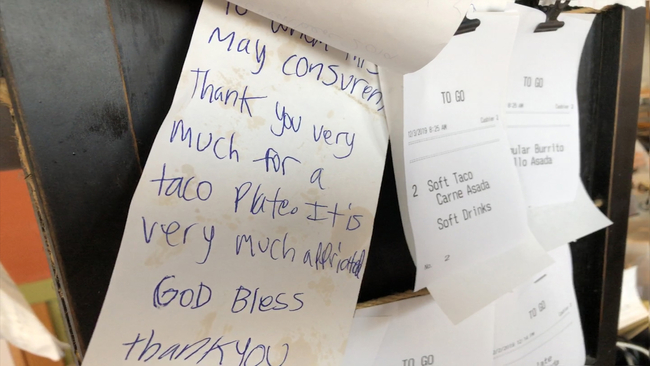 To whom this
May consurem,
Thank you very
Much for a
taco Plate. It is
very much affriciated
GOD Bless
thank you
TO GO
12/3/2019 8:25 AM
2 Soft Taco
Carne Asada
Soft Drinks
2
TO GO
8:25 AM
gular Burrito
llo Asada
TO GO
TO GO